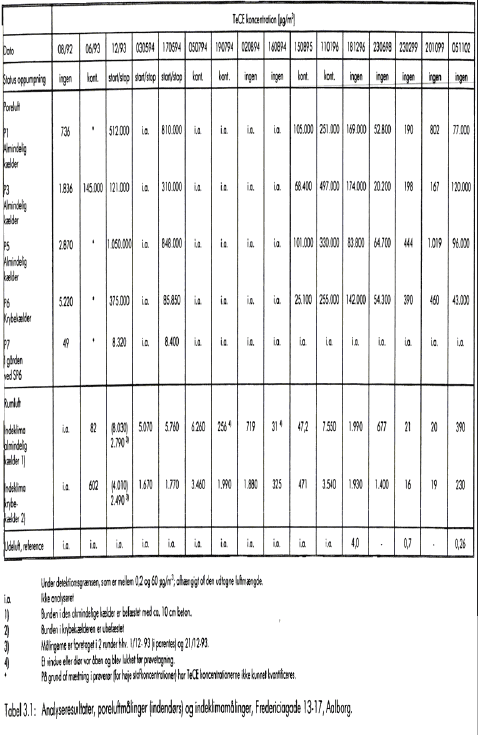 TeCE koncentration (µg/m³)
Dato 08/92 06/93 12/93 030594 170594 050794 190794 020894 160894 150895 110196 181296 230698 230299 201099 051102
Status oppumpning ingen kont. start/stop start/stop start/stop kont. kont. ingen ingen kont. kont. ingen ingen ingen ingen ingen
Poreluft
P1 736 * 512.000 i.a. 810.000 i.a. i.a. i.a. i.a. 105.000 251.000 169.000 52.800 190 802 77.000
Almindelig
kælder
P3 1.836 145.000 121.000 i.a. 310.000 i.a. i.a. i.a. i.a. 68.400 497.000 174.000 20.200 198 167 120.000
Almindelig
kælder
P5 2.870 * 1.050.000 i.a. 848.000 i.a. i.a. i.a. i.a. 101.000 330.000 83.800 64.700 444 1.019 96.000
Almindelig
kælder
P6 5.220 * 375.000 i.a. 85.850 i.a. i.a. i.a. i.a. 25.100 255.000 142.000 54.300 390 460 43.000
Krybekælder
P7 49 * 8.320 i.a. 8.400 i.a. i.a. i.a. i.a. i.a. i.a. i.a. i.a. i.a. i.a. i.a.
I gården
ved SP6
Rumluft
Indeklima i.a. 82 (8.030) 5.070 5.760 6.260 256 4) 719 31 4) 47,2 7.550 1.990 677 21 20 390
almindelig 2.790 3)
kælder 1)
Indeklima i.a. 602 (4.010) 1.670 1.770 3.460 1.990 1.880 325 471 3.540 1.930 1.400 16 19 230
krybe- 2.490 3)
kælder 2)
Udeluft, reference i.a. i.a. i.a. i.a. i.a. i.a. i.a. i.a. i.a. i.a. i.a. 4,0 - 0,7 - 0,26
Under detektionsgrænsen, som er mellem 0,2 og 60 µg/m³; afhængigt af den udtagne luftmængde.
i.a. Ikke analyseret
1) Bunden i den almindelige kælder er befæstet med ca. 10 cm beton.
2) Bunden i krybekælderen er ubefæstet
3) Målingerne er foretaget i 2 runder hhv. 1/12- 93 (i parentes) og 21/12-93.
4) Et vindue eller dør var åben og blev lukket før prøvetagning.
* På grund af mætning i prøverør (for høje stofkoncentrationer) har TeCE koncentrationerne ikke kunnet kvantificeres.
Tabel 3.1: Analyseresultater, poreluftmålinger (indendørs) og indeklimamålinger, Fredericiagade 13-17, Aalborg.